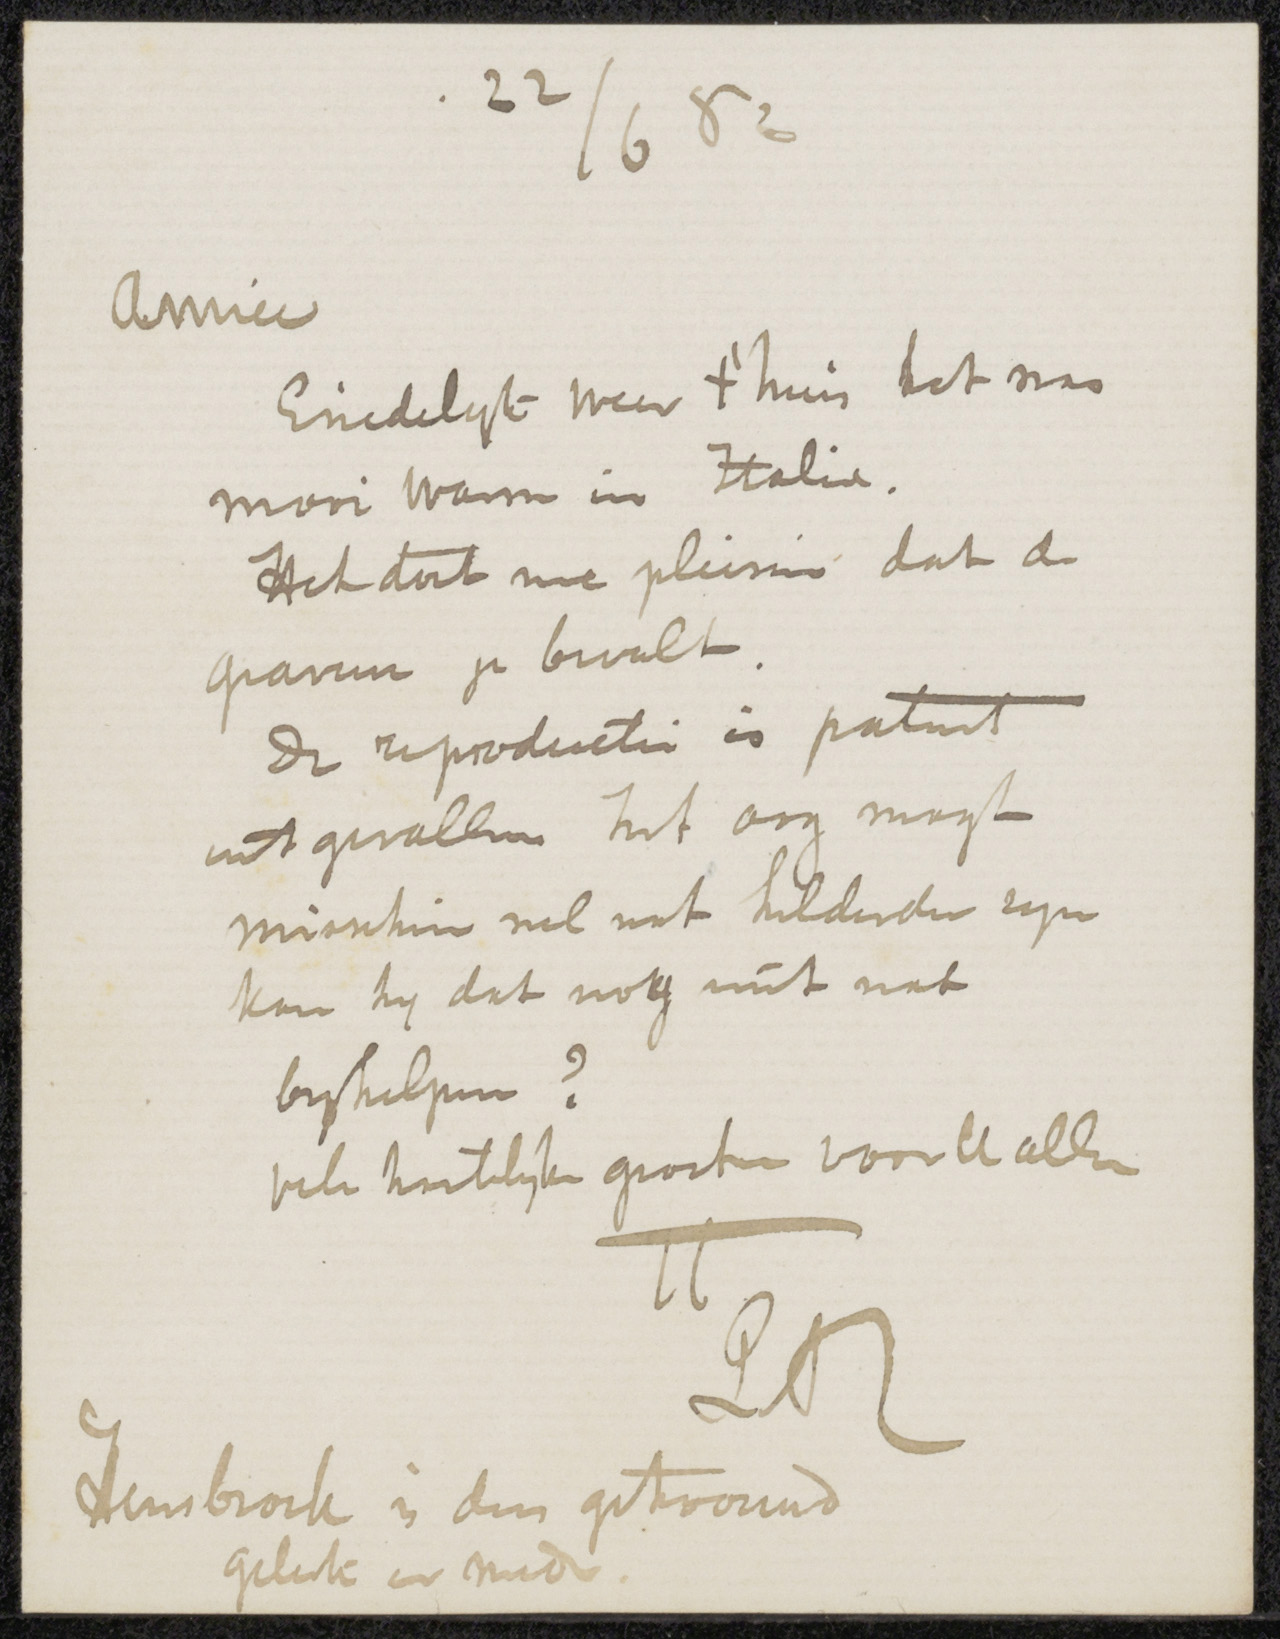 22/6 82
Amice
Eindelijk weer t'huis het was
mooi warm in Italie.
Het doet me pleisier dat de
gravure je bevalt.
De reproductie is patent
uitgevallen het oog mogt
misschien wel wat helderder zijn
kan hij dat nog niet wat
bijhelpen?
vele hartelijke groeten voor U allen
TT
Hensbroek is dus getrouwd
geluk er mede.